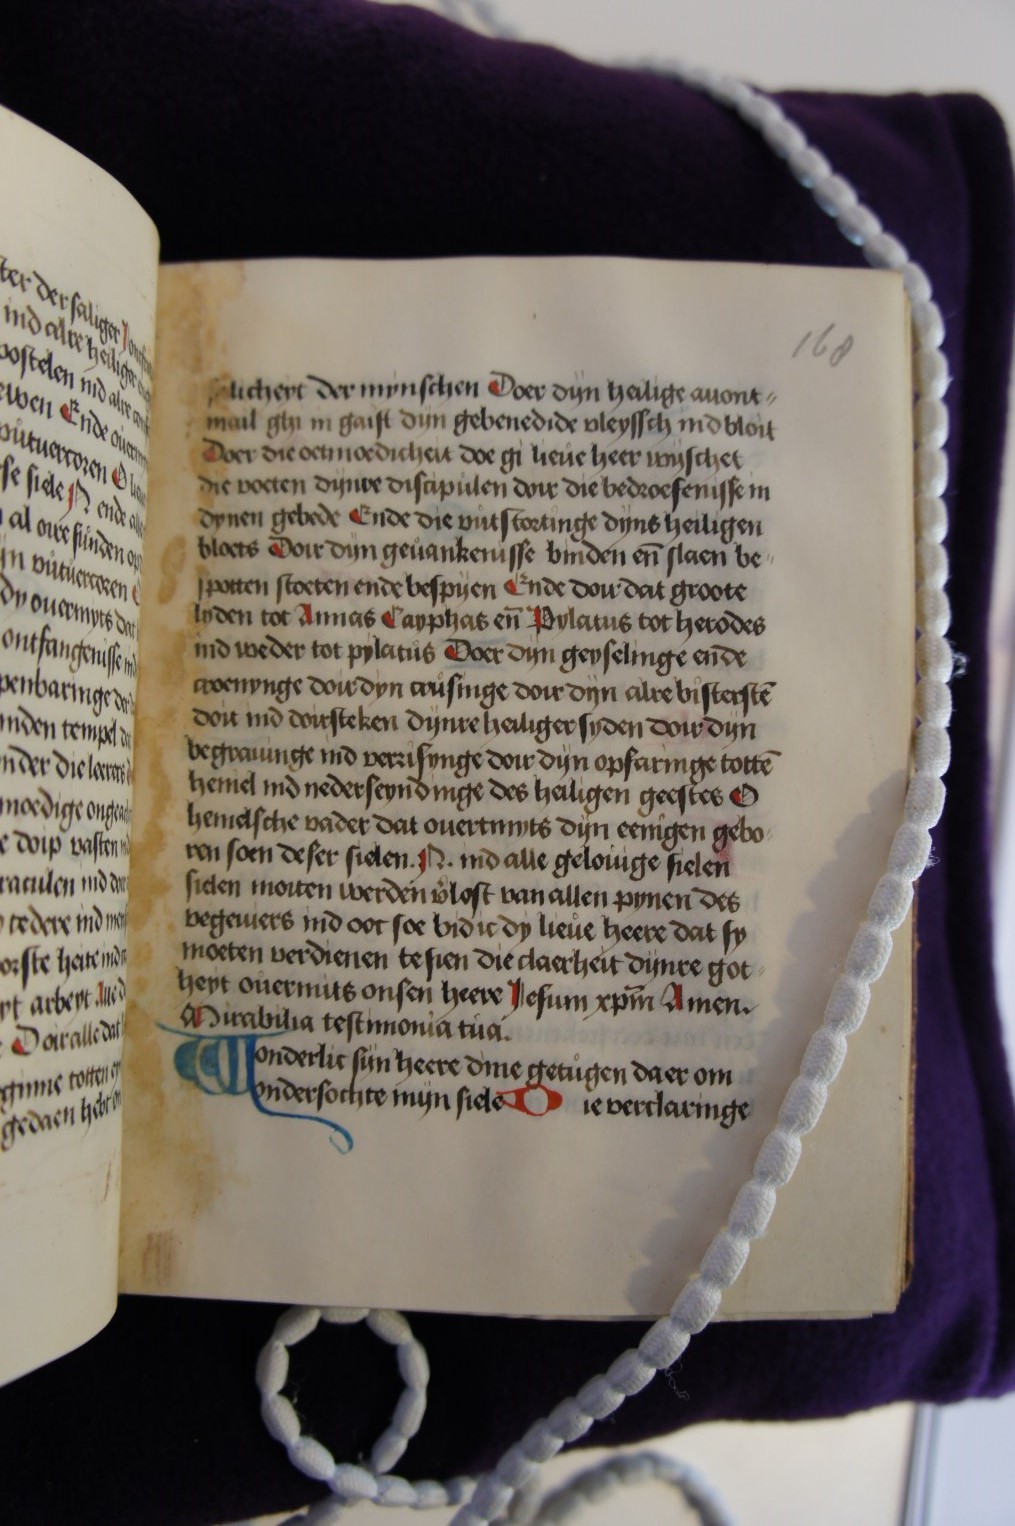 ter der saliger
ind alre heiliger
postelen ind alre
ewen Ende ouermits
vůtuercoren O
se siele N ende
al oire sunden
jn vůtuercoren
dy ouermyts dat
ontfangenisse
penbaringe der
inden tempel
nder die leerers
moedige
e doip vasten
raculen ind
tedere ind
orste heite ind
yt arbeyt Alle
Doir alle dat
ginne totten
gedaen hebt
168
lichent der mynschen Doer dijn heilige auont-
mail ghi in gaift dijn gebenedide vleyssch ind bloit
Doer die oetmoedicheit doe gi lieue heer wijschet
die voeten dijnre discipulen doir die bedroefenisse in
dynen gebede Ende die vůtstortinge dijns heiligen
bloets Doir dijn geuankenisse binden en̄ slaen be-
spotten stoeten ende bespijen Ende doir dat groote
lyden tot Annas Cayphas en̄ Pylatus tot herodes
ind weder tot pylatus Doer dijn geyselinge ende
croenynge doir dyn crusinge doir dijn alre bisterstē
doit ind doirsteken dijnre heiliger syden doir dijn
begrauinge ind verrisynge doir dijn opfaringe tottē
hemel ind nederseyndinge des heiligen geestes O
hemelsche vader dat ouermyts dijn eenigen gebo-
ren soen deser sielen .N. ind alle gelouige sielen
sielen moiten werden v̄lost van allen pynen des
vegewers ind oot soe bid ic dy lieue heere dat sy
moeten verdienen te sien die claerheit dijnre got-
heyt ouermits onsen heere Jesum xp̄m Amen.
Mirabilia testimonia tua.
Wonderlic sijn heere dine getugen daer om
ondersochte mijn siele Die verclaringe